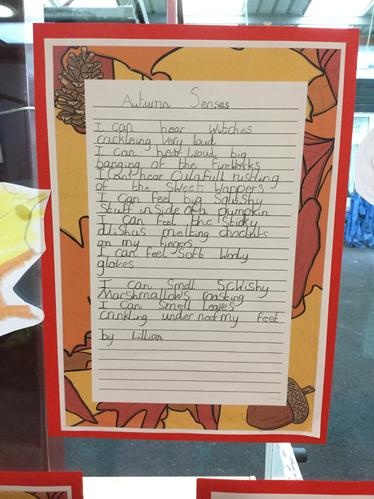 Autumn Senses
I can hear witches
crackleing very loud.
I can hear loud big
banging of the fireworks
I can hear rustling
of the sweet wappers
I can feel big squishy
stuff in side of a pumpkin
I can feel the sticky
dilishus melting chocluts
on my fingers.
I can feel soft wooly
gloves
I can smell scwishy
Marshmallows roasting
I can smell leaves
crinkling under my feet
by Lillian